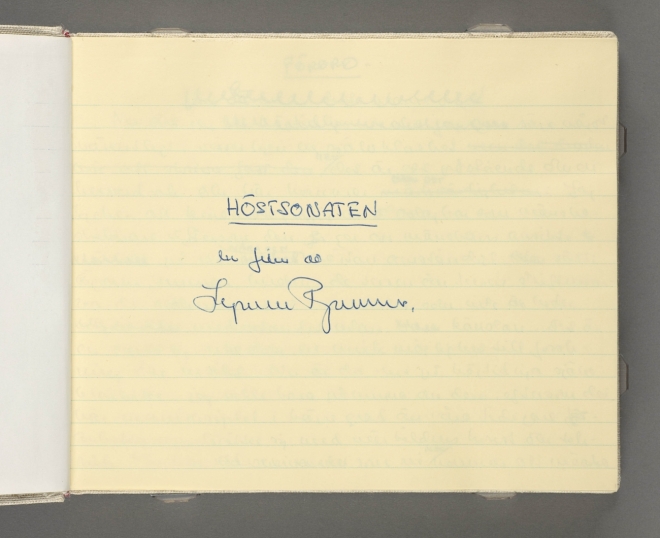 HÖSTSONATEN
en film av
Ingmar Bergman.